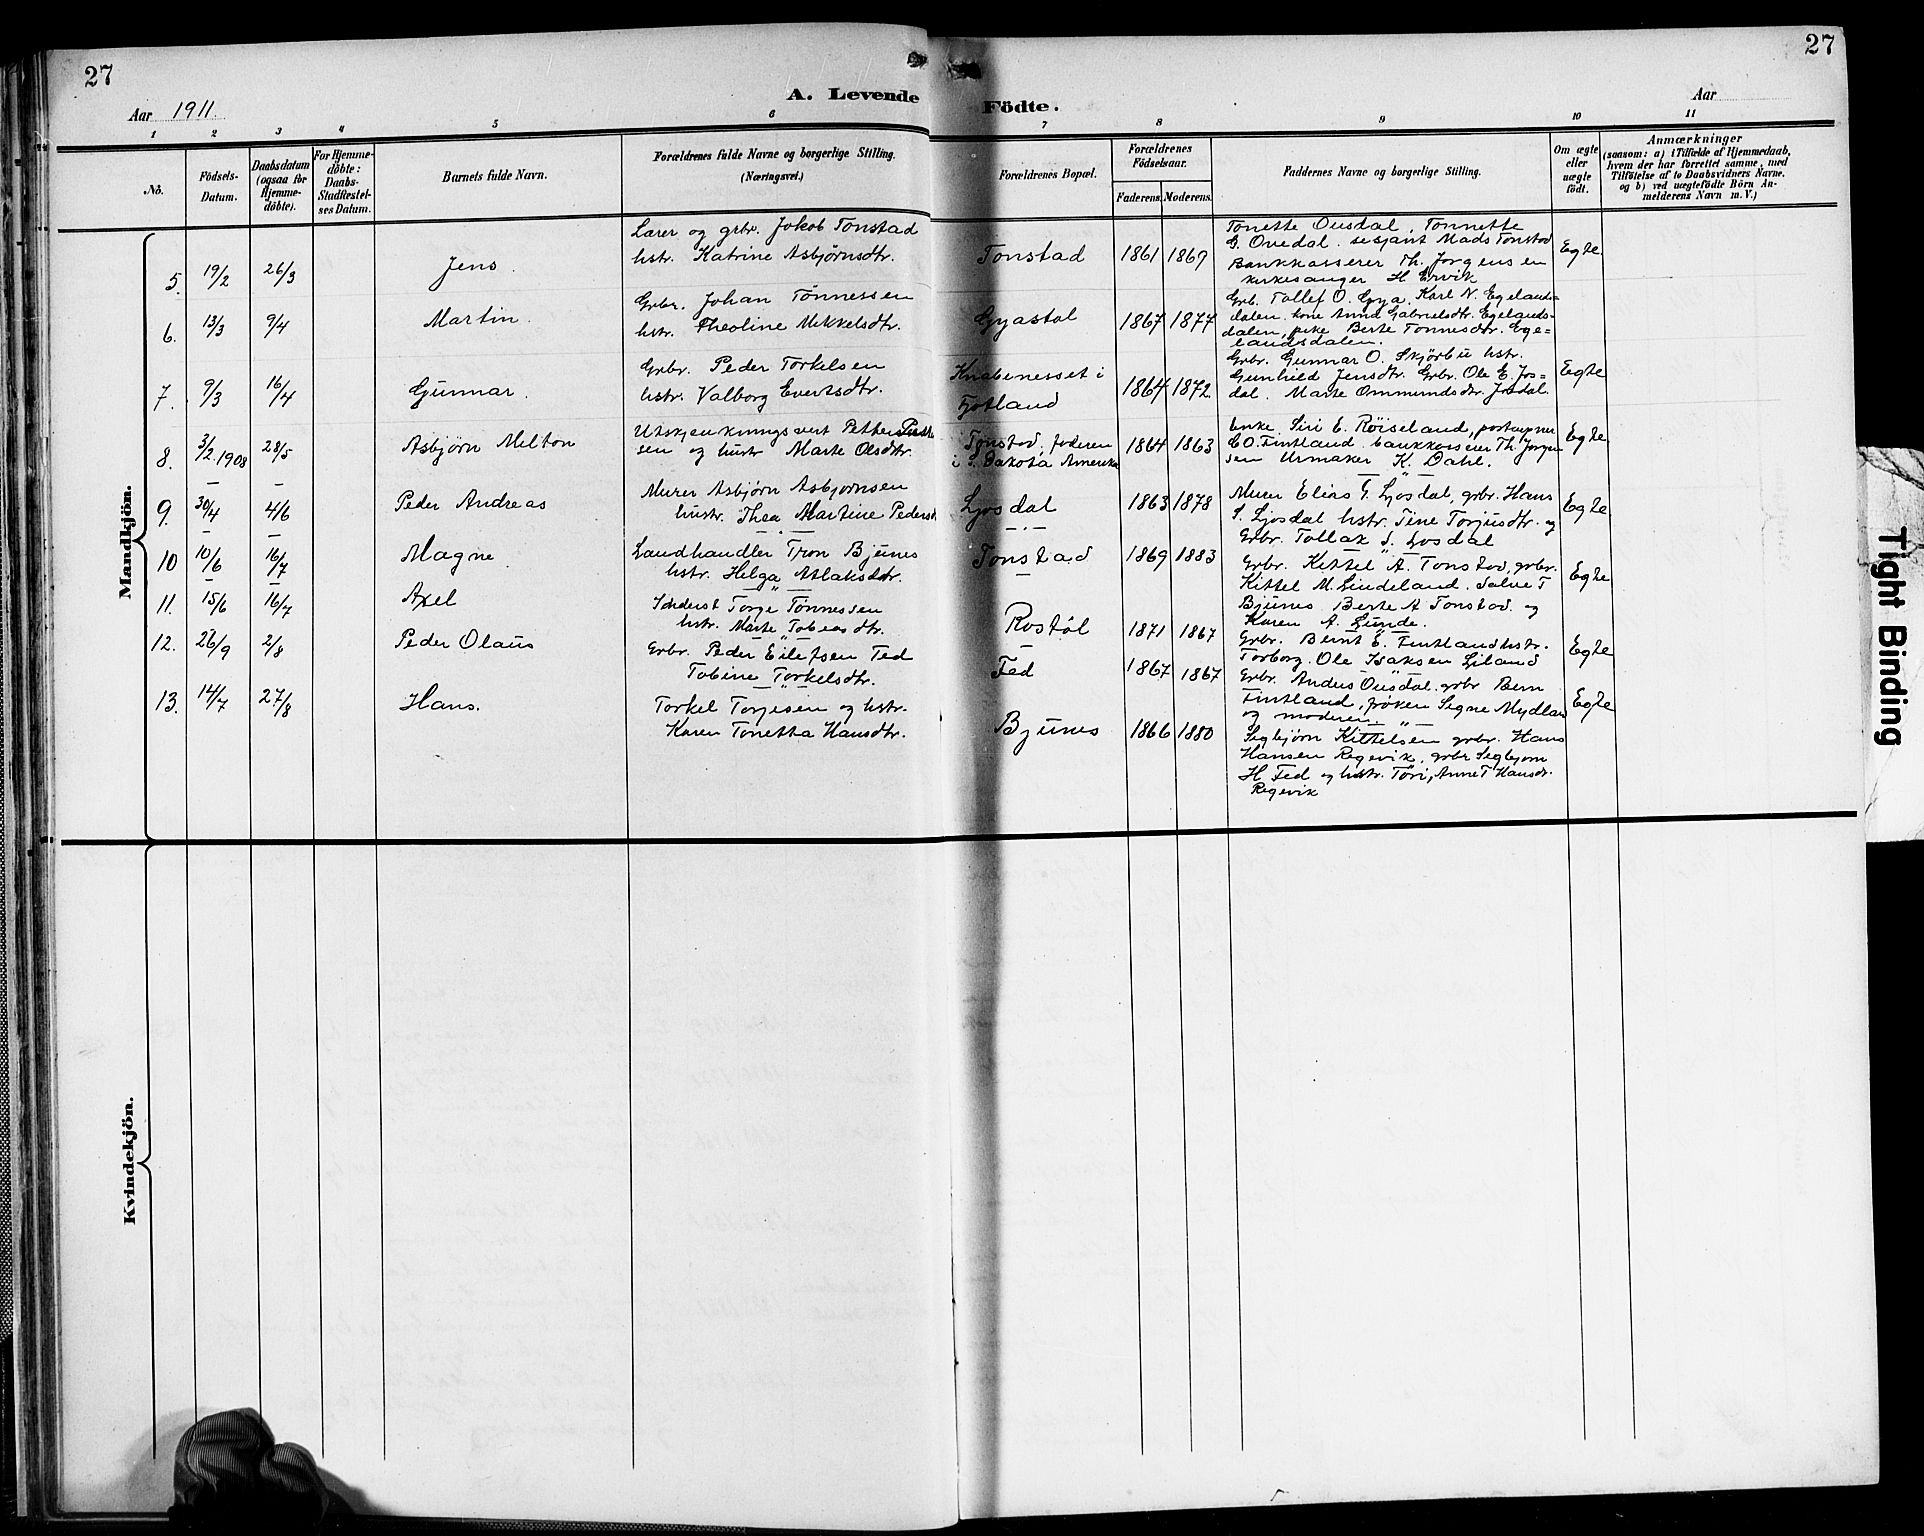 27
27
Aar 1911.
A. Levende Födte.
Aar
1 2 3 4 5 6 7 8 9 10 11
No.
Födsels-Datum.
Daabsdatum (ogsaa for Hjemme-döbte).
For Hjemme-döbte: Daabs-Stadfæstel-ses Datum.
Barnets fulde Navn.
Forældrenes fulde Navne og borgerlige Stilling.
(Næringsvei.)
Forældrenes Bopæl.
Forældrenes Födselsaar.
Faderens. Moderens.
Faddernes Navne og borgerlige Stilling.
Om ægte eller uægte födt.
Anmærkninger
(saasom: a) i Tilfælde af Hjemmedaab, hvem der har forrettet samme, med Tilföielse af to Daabsvidners Navne. og b) ved uægtefödte Börn An-melderens Navn m. V.)
Mandkjön.
5. 19/2 26/3 Jens.
Lærer og grbr. Jokob Tonstad
hstr. Katrine Asbjörnsdtr.
Tonstad 1861 1869
Tonette Ousdal, Tonnette
G. Ovedal. sersjant Mads Tonstad
Bankkasserer Th. Jorgensen
kirkesanger H Ervik
Egte
6. 13/3 9/4 Martin.
Grbr. Johan Tönnessen
hstr. Theoline Mikkelsdtr.
Gyastøl 1867 1877
Grb. Tollef O. Gya, Karl N. Egelands-
dalen. kone Anna Gabrielsdtr. Egelands-
dalen, pike Berte Tonnesdtr. Ege=
landsdalen.
7. 9/3 16/4 Gunnar.
Grbr. Peder Torkelsen
hstr. Valborg Evertsdtr.
Knabenesset i
Fjotland
1864 1872
Grbr. Gunnar O. Skjörbu hstr.
Gunhild Jensdtr. Grbr. Ole E. Jos=
dal. Marte Ommundsdtr. Josdal.
Egte
8. 3/2 1908 28/5 Asbjørn Milton
Utskjænkningsvert Petter
sen og hustr Marte Olsdtr.
Tonstad, faderen
i Dakota Amerika
1864 1863
Enke Siri E. Röiseland, postaapner
E O. Fintland bankkasserer Th. Jorgen
sen Urmaker K. Dahl.
Egte
9. 30/4 4/6 Peder Andreas
Murer Asbjørn Asbjornsen
hustr. Thea Martine Pedersd.
Ljosdal 1863 1878
Murer Elias T. Ljosdal, grbr. Hans
S. Ljosdal hstr. Tine Torjusdtr. og
Grbr. Tollak S. Ljosdal
Egte
10 10/6 16/7 Magne
Landhandler Tron Bjunes
hstr. Helga Atlaksdtr.
Tonstad 1869 1883
Grbr. Kittel A. Tonstad, grbr.
Kittel M. Lindeland. Salve T
Bjunes Berte A Tonstad og
Karen A. Lunde.
Egte
11. 15/6 16/7 Axel
Torge Tönnessen
hstr. Marte Tobiasdtr.
Rostøl 1871 1867
Grbr. Bernt E. Fintland hstr.
Torborg. Ole Isaksen Liland
12. 26/9 2/8 Peder Olaus
Grbr. Peder Eilefsen Fed
Tobine Torkelsdtr.
Fed 1867 1867
Grbr. Anders Ousdal. grbr Bern
Fintland, fröken Signe Mydland
og moderen
Egte
13. 14/7 27/8 Hans.
Torkel Torjesen og hstr.
Karen Tonetta Hansdtr.
Bjunes 1866 1880
Segbjørn Kittelsen grbr. Hans
Hansen Regevik, grbr Segbjorn
H Fed og hstr. Töri, Anne T Hansdr.
Regevik
Egte
Kvindekjön.
Tight Binding